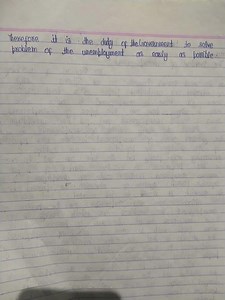 therefore it is the duty of the Government to solve
problem of the unemployment as early as posible.